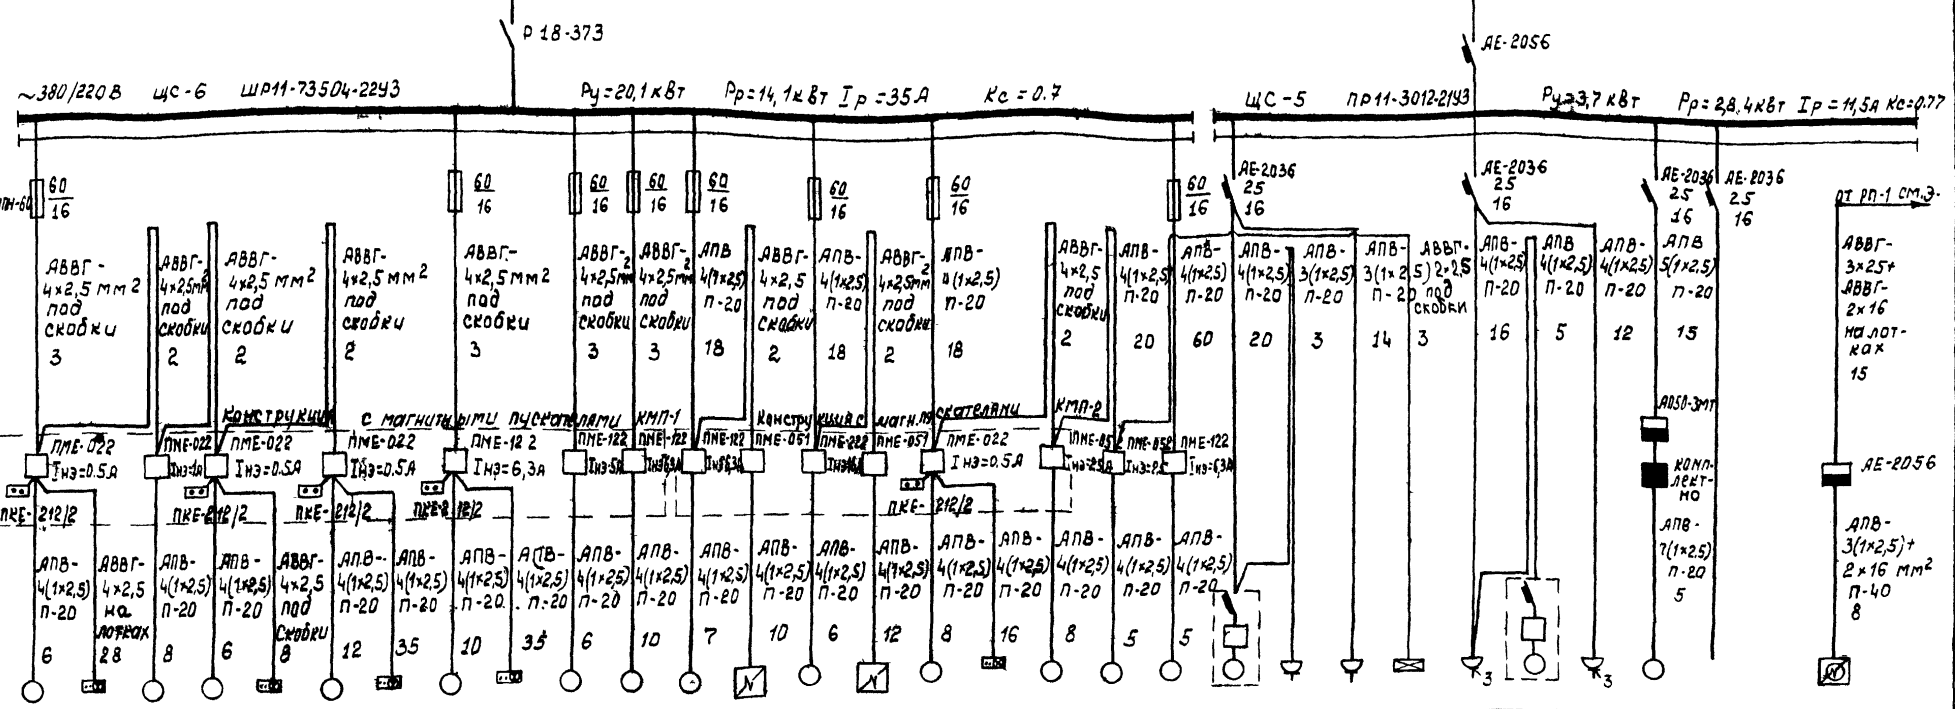 Р 18-373
АЕ-2056
~380/220В ЩС-6 ШР11-73504-22У3 Ру=20,1кВт Рр=14,1кВт Iр=35А Кс=0.7
ЩС-5 ПР11-3012-21У3 Ру=3,7 кВт Рр=2,8,4кВт Iр=11,5А Кс=0.77
60 60 60 60 60 60 60 60
16 16 16 16 16 16 16 16
АЕ-2036
25
16
АЕ-2036
25
16
АЕ-2036
25
16
АЕ-2036
25
16
от РП-1 см.Э-
АВВГ-
4х2,5 мм2
под
скобки
3
АВВГ-
4х2,5мм2
под
скобки
2
АВВГ-
4х2,5 мм2
под
скобки
2
АВВГ-
4х2,5 мм2
под
скобки
2
АВВГ-
4х2,5 мм2
под
скобки
3
АВВГ-
4х2,5мм2
под
скобки
3
АВВГ-
4х2,5мм2
под
скобки
3
АПВ
4(1х2,5)
П-20
18
АВВГ-
4х2,5
под
скобки
2
АПВ-
4(1х2,5)
П-20
18
АВВГ-
4х2,5мм2
под
скобки
2
АПВ-
4(1х2,5)
П-20
18
АВВГ-
4х2,5
под
скобки
2
АПВ-
4(1х2,5)
П-20
20
АПВ-
4(1х2,5)
П-20
60
АПВ-
4(1х2,5)
П-20
20
АПВ-
3(1х2,5)
П-20
3
АПВ-
3(1х2,5)
П-20
14
АВВГ-
2х2,5
под
скобки
3
АПВ-
4(1х2,5)
П-20
16
АПВ
4(1х2,5)
П-20
5
АПВ-
4(1х2,5)
П-20
12
АПВ
5(1х2,5)
П-20
15
АВВГ-
3х25+
АВВГ-
2х16
на лот-
ках
15
конструкция с магнитными пускателями КМП-1
КМП-2
ПМЕ-022
Iнэ=0.5А
ПМЕ-022
ПМЕ-022
Iнэ=0.5А
ПМЕ-022
Iнэ=0.5А
ПМЕ-122
Iнэ=6,3А
ПМЕ-122
ПМЕ-122
ПМЕ-122
ПМЕ-051
ПМЕ-222
ПМЕ-051
ПМЕ-022
Iнэ=0.5А
ПМЕ-122
Iнэ=6,3А
А050-3МТ
комп-
лект-
но
АЕ-2056
ПКЕ-212/2
ПКЕ-212/2
ПКЕ-212/2
ПКЕ-212/2
ПКЕ-212/2
АПВ-
4(1х2,5)
П-20
6
АВВГ-
4х2,5
на
лотках
28
АПВ-
4(1х2,5)
П-20
8
АПВ-
4(1х2,5)
П-20
6
АВВГ-
4х2,5
под
скобки
8
АПВ-
4(1х2,5)
П-20
12
АПВ-
4(1х2,5)
П-20
35
АПВ-
4(1х2,5)
П-20
10
АПВ-
4(1х2,5)
П-20
35
АПВ-
4(1х2,5)
П-20
6
АПВ-
4(1х2,5)
П-20
10
АПВ-
4(1х2,5)
П-20
7
АПВ-
4(1х2,5)
П-20
10
АПВ-
4(1х2,5)
П-20
6
АПВ-
4(1х2,5)
П-20
12
АПВ-
4(1х2,5)
П-20
8
АПВ-
4(1х2,5)
П-20
16
АПВ-
4(1х2,5)
П-20
8
АПВ-
4(1х2,5)
П-20
5
АПВ-
4(1х2,5)
П-20
5
АПВ-
7(1х2,5)
П-20
5
АПВ-
3(1х2,5)+
2х16 мм2
П-40
8
3
3